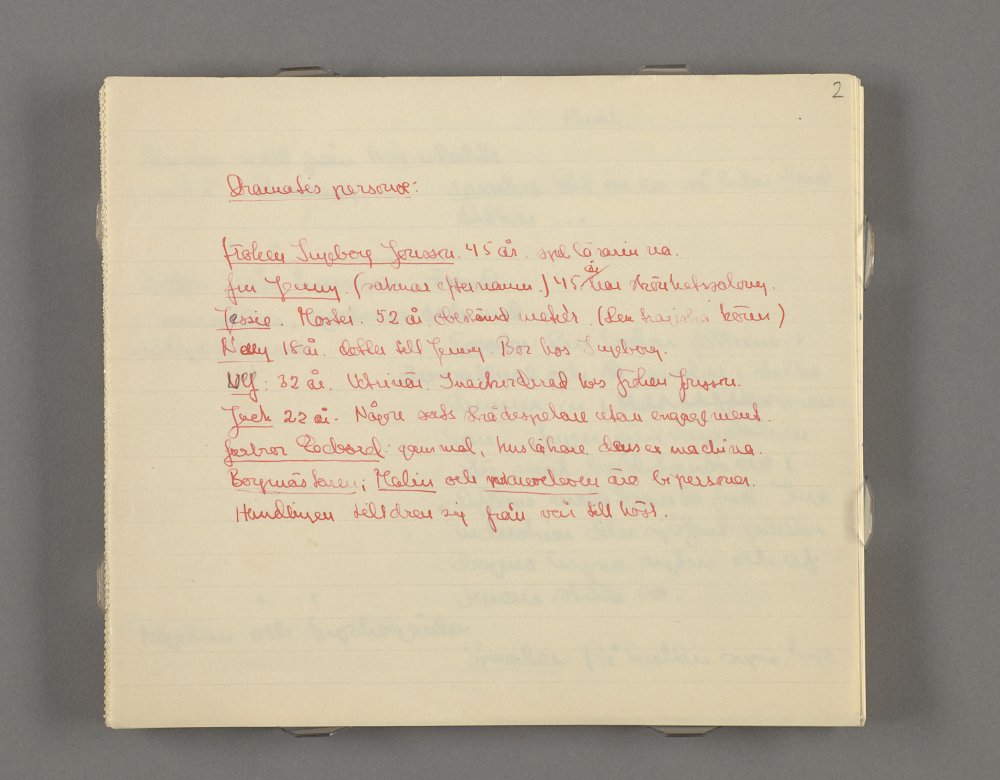 2
Dramatis personæ:
fröken Ingeborg Jonsson. 45 år. spellärarinna.
fru Jenny. (saknar efternamn.) 45 år har skönhetssalong.
Jessie. Moster. 52 år obestämd metiér. (Den tragiska kören)
Nelly 18 år. dotter till Jenny. Bor hos Ingeborg.
Ulf: 32 år. Veterinär. Inackorderad hos fröken Jonsson.
Jack 22 år. Någon sorts skådespelare utan engagement
farbror Edvard: gammal, husläkare. deus ex machina.
Borgmästaren; Malin och pianoeleven äro bipersoner.
Handlingen tilldrar sig från vår till höst.